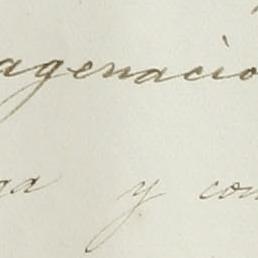 agenacio
ga y con